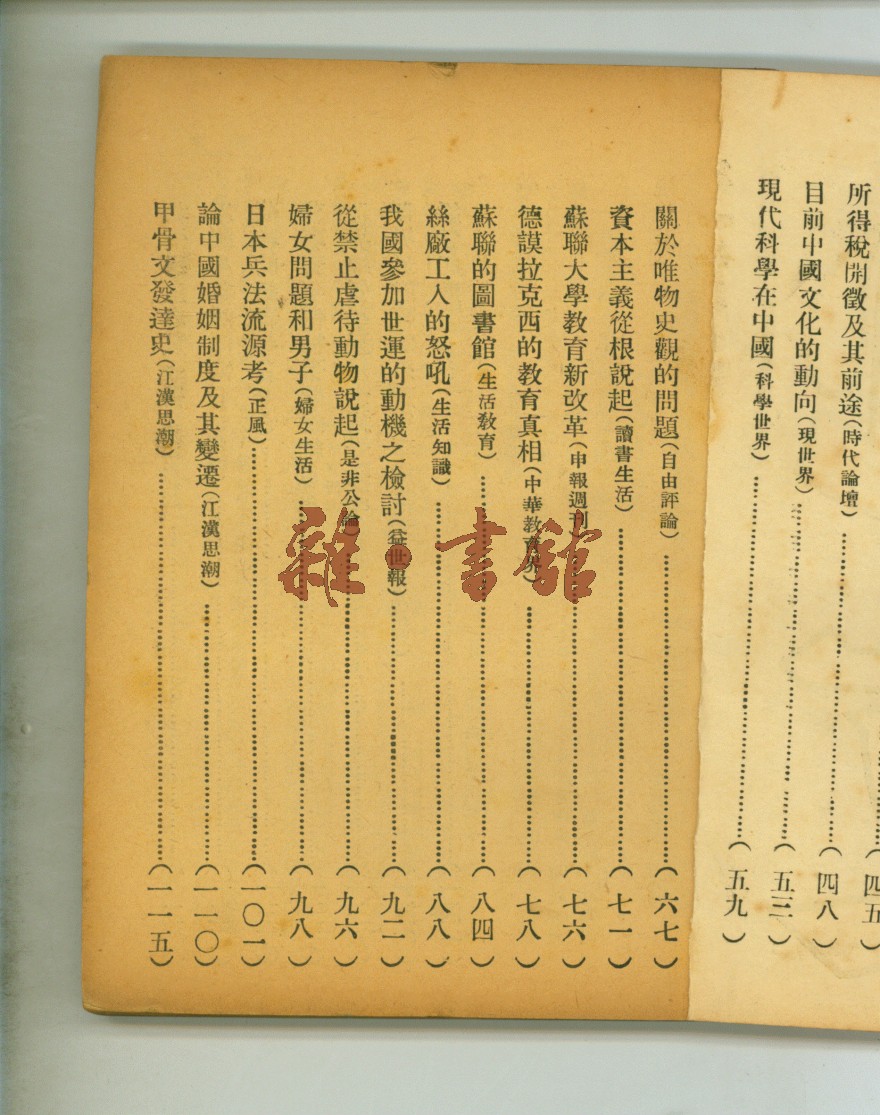 （四五）
所得稅開徵及其前途（時代論壇）……（四八）
目前中國文化的動向（現世界）……（五三）
現代科學在中國（科學世界）……（五九）
關於唯物史觀的問題（自由評論）……（六七）
資本主義從根說起（讀書生活）……（七一）
蘇聯大學教育新改革（申報週刊）……（七六）
德謨拉克西的教育真相（中華教育界）……（七八）
蘇聯的圖書館（生活教育）……（八四）
絲廠工人的怒吼（生活知識）……（八八）
我國參加世運的動機之檢討（益世報）……（九二）
從禁止虐待動物說起（是非公論）……（九六）
婦女問題和男子（婦女生活）……（九八）
日本兵法流源考（正風）……（一〇一）
論中國婚姻制度及其變遷（江漢思潮）……（一一〇）
甲骨文發達史（江漢思潮）……（一一五）
雜·書館